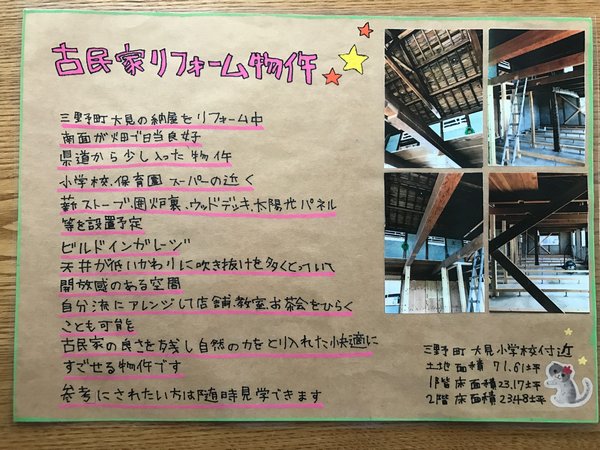 古民家リフォーム物件
三野町大見の納屋をリフォーム中
南面が畑で日当良好
県道から少し入った物件
小学校、保育園 スーパーの近く
薪ストーブ、囲炉裏、ウッドデッキ、太陽光パネル
等を設置予定
ビルドインガレージ
天井が低いかわりに吹き抜けを多くとっていて
開放感のある空間
自分流にアレンジして店舗、教室、お茶会をひらく
ことも可能を
古民家の良さを残し自然の力をとり入れた快適に
すごせる物件です
参考にされたい方は随時見学できます
三野町大見小学校付近
土地面積 71.61坪
1階床面積 23.17坪
2階床面積 23.48坪